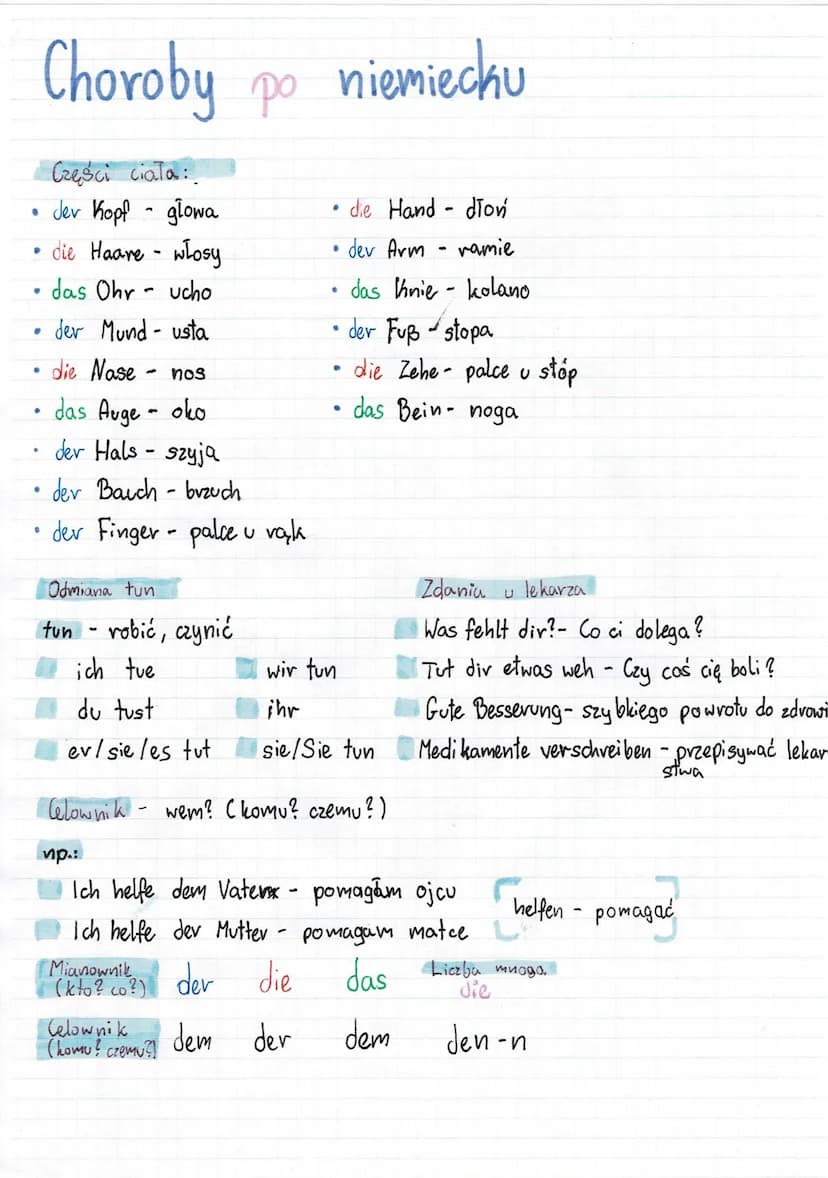 Choroby po niemiecku
Części ciała:
• der Kopf - głowa
• die Haare - włosy
• das Ohr - ucho
• der Mund - usta
• die Nase - nos
• das Auge - oko
• der Hals - szyja
• der Bauch - brzuch
• der Finger - palce u rąk
• die Hand - dłoń
• der Arm - ramie
• das Knie - kolano
• der Fuß - stopa
• die Zehe - palce u stóp
• das Bein - noga
Odmiana tun
tun - robić, czynić
ich tue
du tust
er/sie/es tut
wir tun
ihr
sie/Sie tun
Zdania u lekarza
Was fehlt dir? - Co ci dolega?
Tut dir etwas weh - Czy coś cię boli?
Gute Besserung - szybkiego powrotu do zdrowi
Medikamente verschreiben - przepisywać lekar
stwa
Celownik - wem? (komu? czemu?)
np.:
Ich helfe dem Vater - pomagam ojcu
Ich helfe der Mutter - pomagam matce
helfen - pomagać
Mianownik
(kto? co?)
der die das
Liczba mnoga.
die
Celownik
(komu? czemu?)
dem der dem den -n